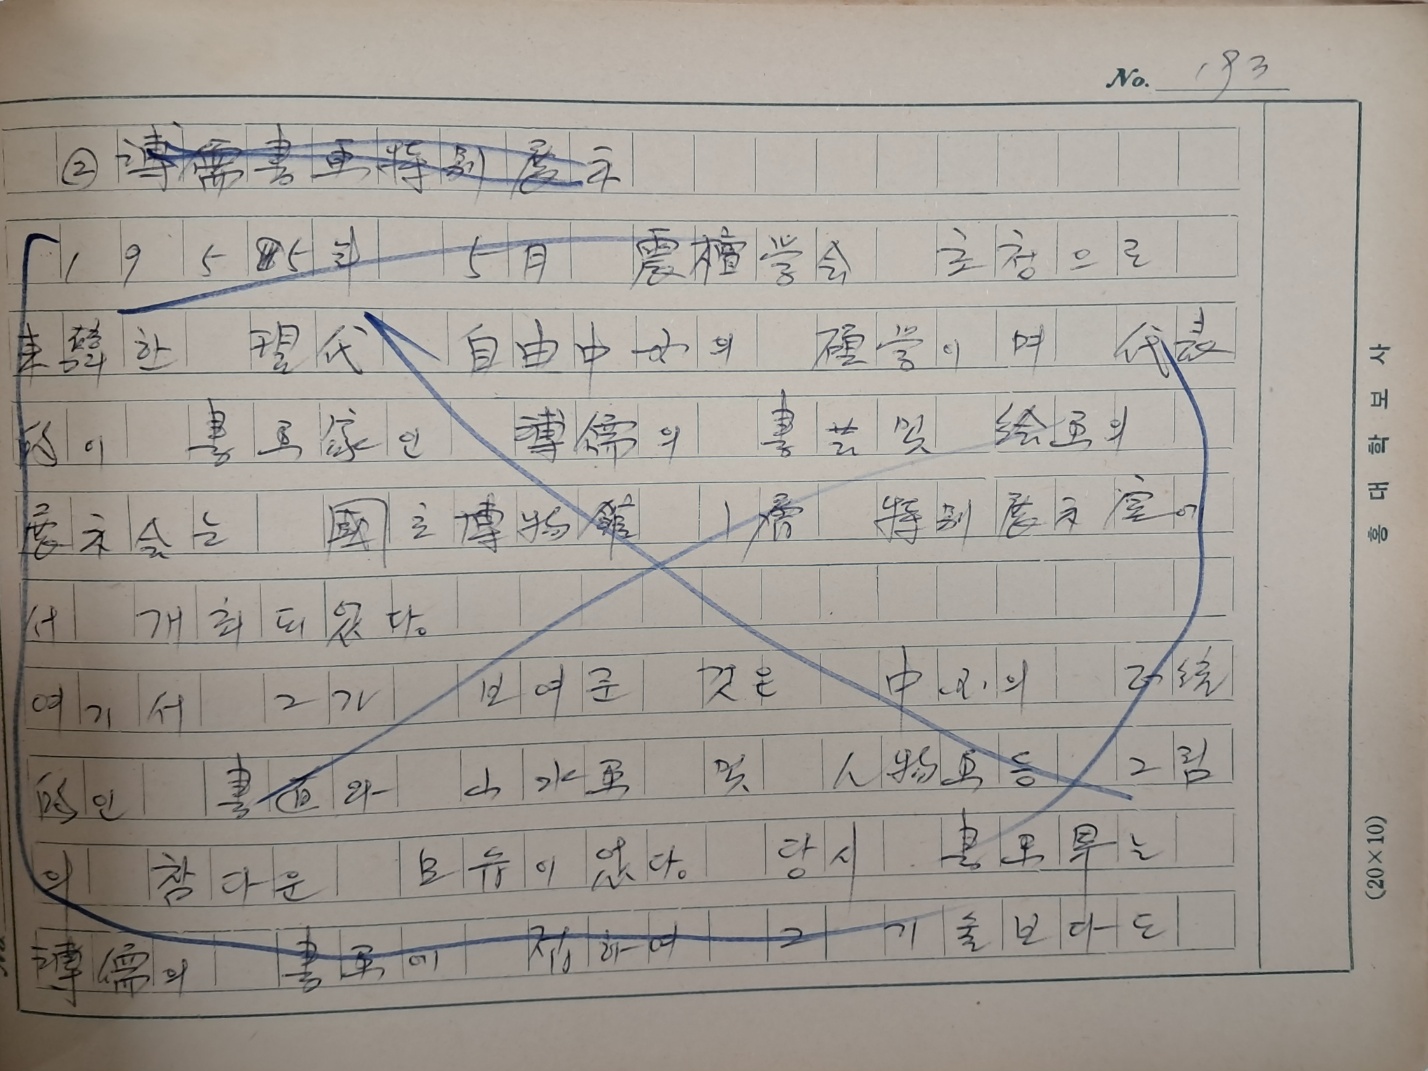 No. 193
② 溥儒書画特別展示
1955年 5月 震檀学会 초청으로
来韓한 現代 自由中国의 碩学이며 代表
的이 書画家인 溥儒의 書芸 및 絵画의
展示会는 國立博物館 1層 特別展示室에
서 개최되었다.
여기서 그가 보여준 것은 中国의 正統
的인 書画와 山水画 및 人物画등 그림
의 참다운 모습이 있었다. 당시 書画界는
溥儒의 書画에 접하여 그 기술보다도
홍대학보사
(20×10)